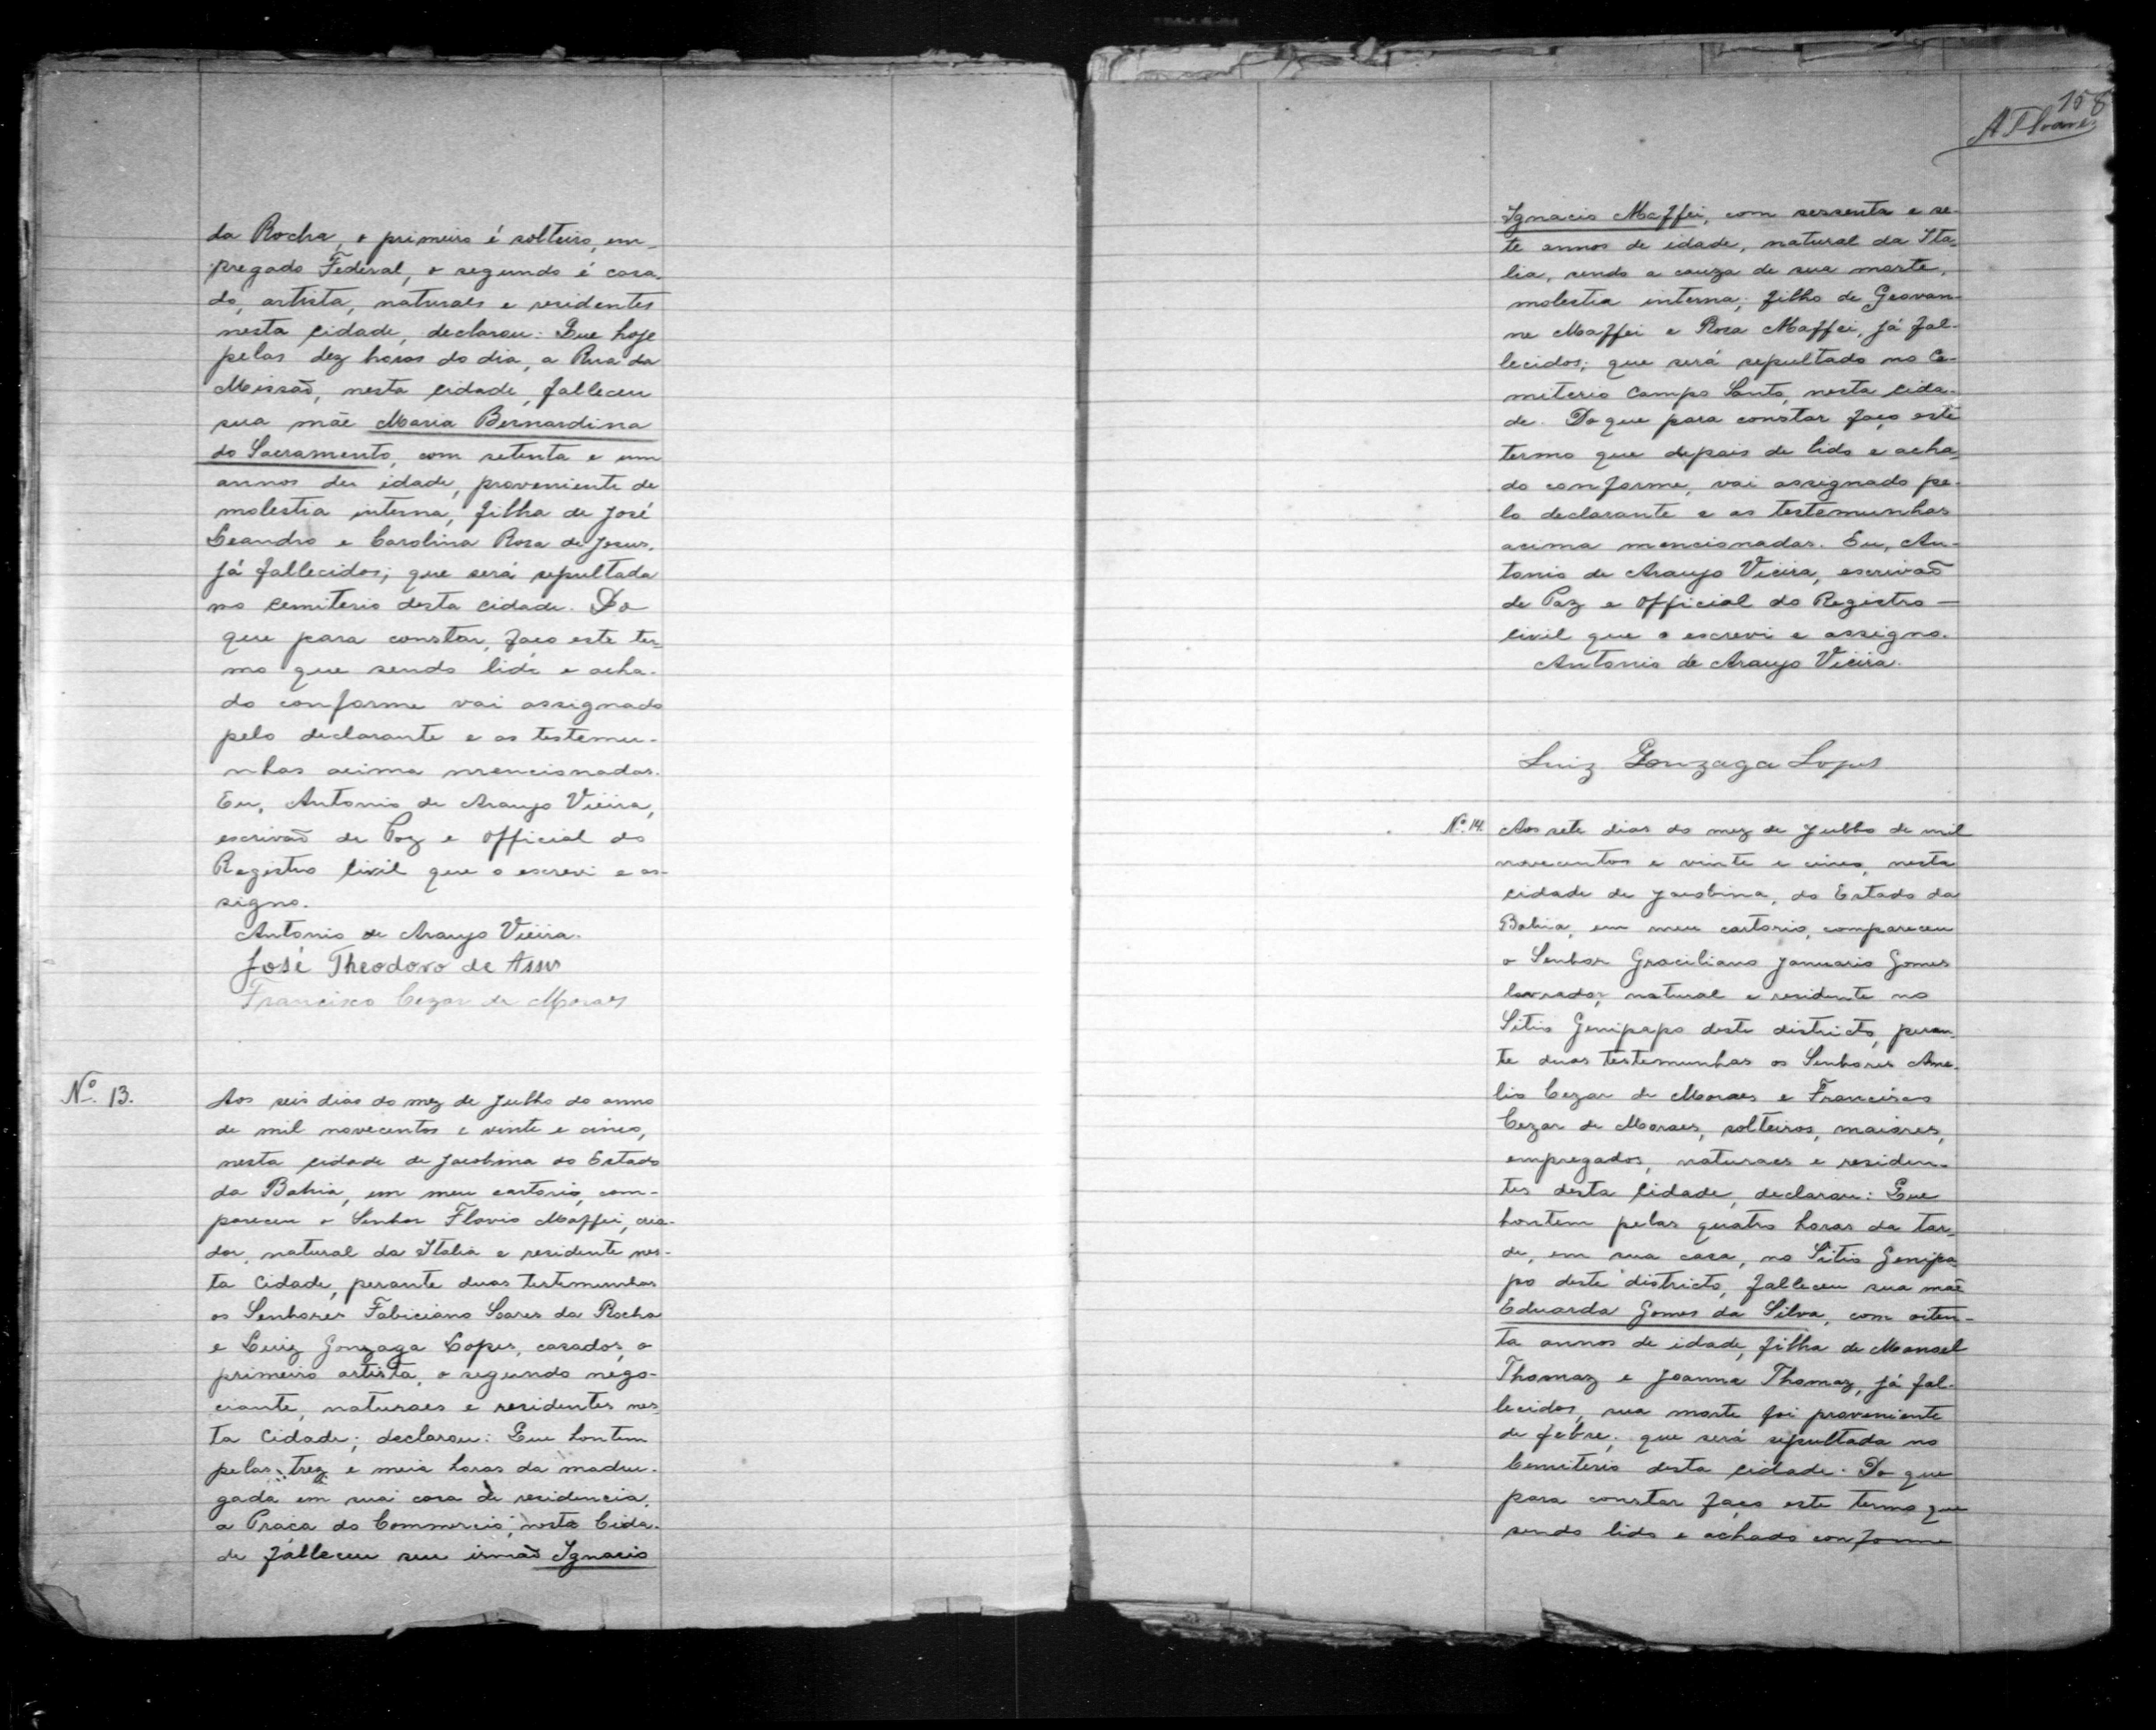 da Rocha, o primeiro é solteiro, em-
pregado Federal, o segundo é casa-
do, artista, naturaes e residentes
nesta cidade, declarou: Que hoje
pelas dez horas do dia, a Rua da
Missaõ, nesta cidade, falleceu
sua mãe Maria Bernardina
do Sacramento, com setenta e um
annos de idade, proveniente de
molestia interna, filha de José
Leandro e Carolina Rosa de Jesus,
já fallecidos; que será sepultada
no cemiterio desta cidade. Do
que para constar, faço este ter-
mo que sendo lido e acha-
do conforme vai assignado
pelo declarante e as testemu-
nhas acima mencionadas.
Eu, Antonio de Araujo Vieira,
escrivaõ de Paz e Official do
Registro Civil que o escrevi e as-
signo.
Antonio de Araujo Vieira.
José Theodoro de Assis
Francisco Cezar de Moraes
Nº. 13.
Aos seis dias do mez de Julho do anno
de mil novecentos e vinte e cinco,
nesta cidade de Jacobina do Estado
da Bahia, em meu cartorio, com-
pareceu o Senhor Flavio Maffei, cria-
dor, natural da Italia e residente nes-
ta Cidade, perante duas testemunhas
os Senhores Fabiciano Soares da Rocha
e Luiz Gonzaga Lopes, casados, o
primeiro artista, o segundo nego-
ciante, naturaes e residentes nes-
ta Cidade; declarou: Que hontem
pelas trez e meia horas da madru-
gada em sua casa de residencia,
a Praça do Commercio, nesta Cida-
de falleceu seu irmaõ Ignacio
158
Ignacio Maffei, com sessenta e se-
te annos de idade, natural da Ita-
lia, sendo a cauza de sua morte,
molestia interna; filho de Geovan-
ne Maffei e Rosa Maffei, já fal-
lecidos; que será sepultado no Ce-
miterio Campo Santo, nesta cida-
de. Do que para constar faço este
termo que depois de lido e acha-
do conforme, vai assignado pe-
lo declarante e as testemunhas
acima mencionadas. Eu, An-
tonio de Araujo Vieira, escrivaõ
de Paz e Official do Registro
Civil que o escrevi e assigno.
Antonio de Araujo Vieira.
Luiz Gonzaga Lopes
Nº. 14.
Aos sete dias do mez de Julho de mil
novecentos e vinte e cinco, nesta
cidade de Jacobina, do Estado da
Bahia, em meu cartorio, compareceu
o Senhor Graciliano Januario Gomes
lavrador, natural e residente no
Sitio Genipapo deste districto, peran-
te duas testemunhas os Senhores Ame-
lio Cezar de Moraes e Francisco
Cezar de Moraes, solteiros, maiores,
empregados, naturaes e residen-
tes desta Cidade, declarou: Que
hontem pelas quatro horas da tar-
de, em sua casa, no Sitio Genipa-
po deste districto, falleceu sua mãe
Eduarda Gomes da Silva, com oiten-
ta annos de idade, filha de Manoel
Thomaz e Joanna Thomaz, já fal-
lecidos, sua morte foi proveniente
de febre; que será sepultada no
Cemiterio desta cidade. Do que
para constar faço este termo que
sendo lido e achado conforme